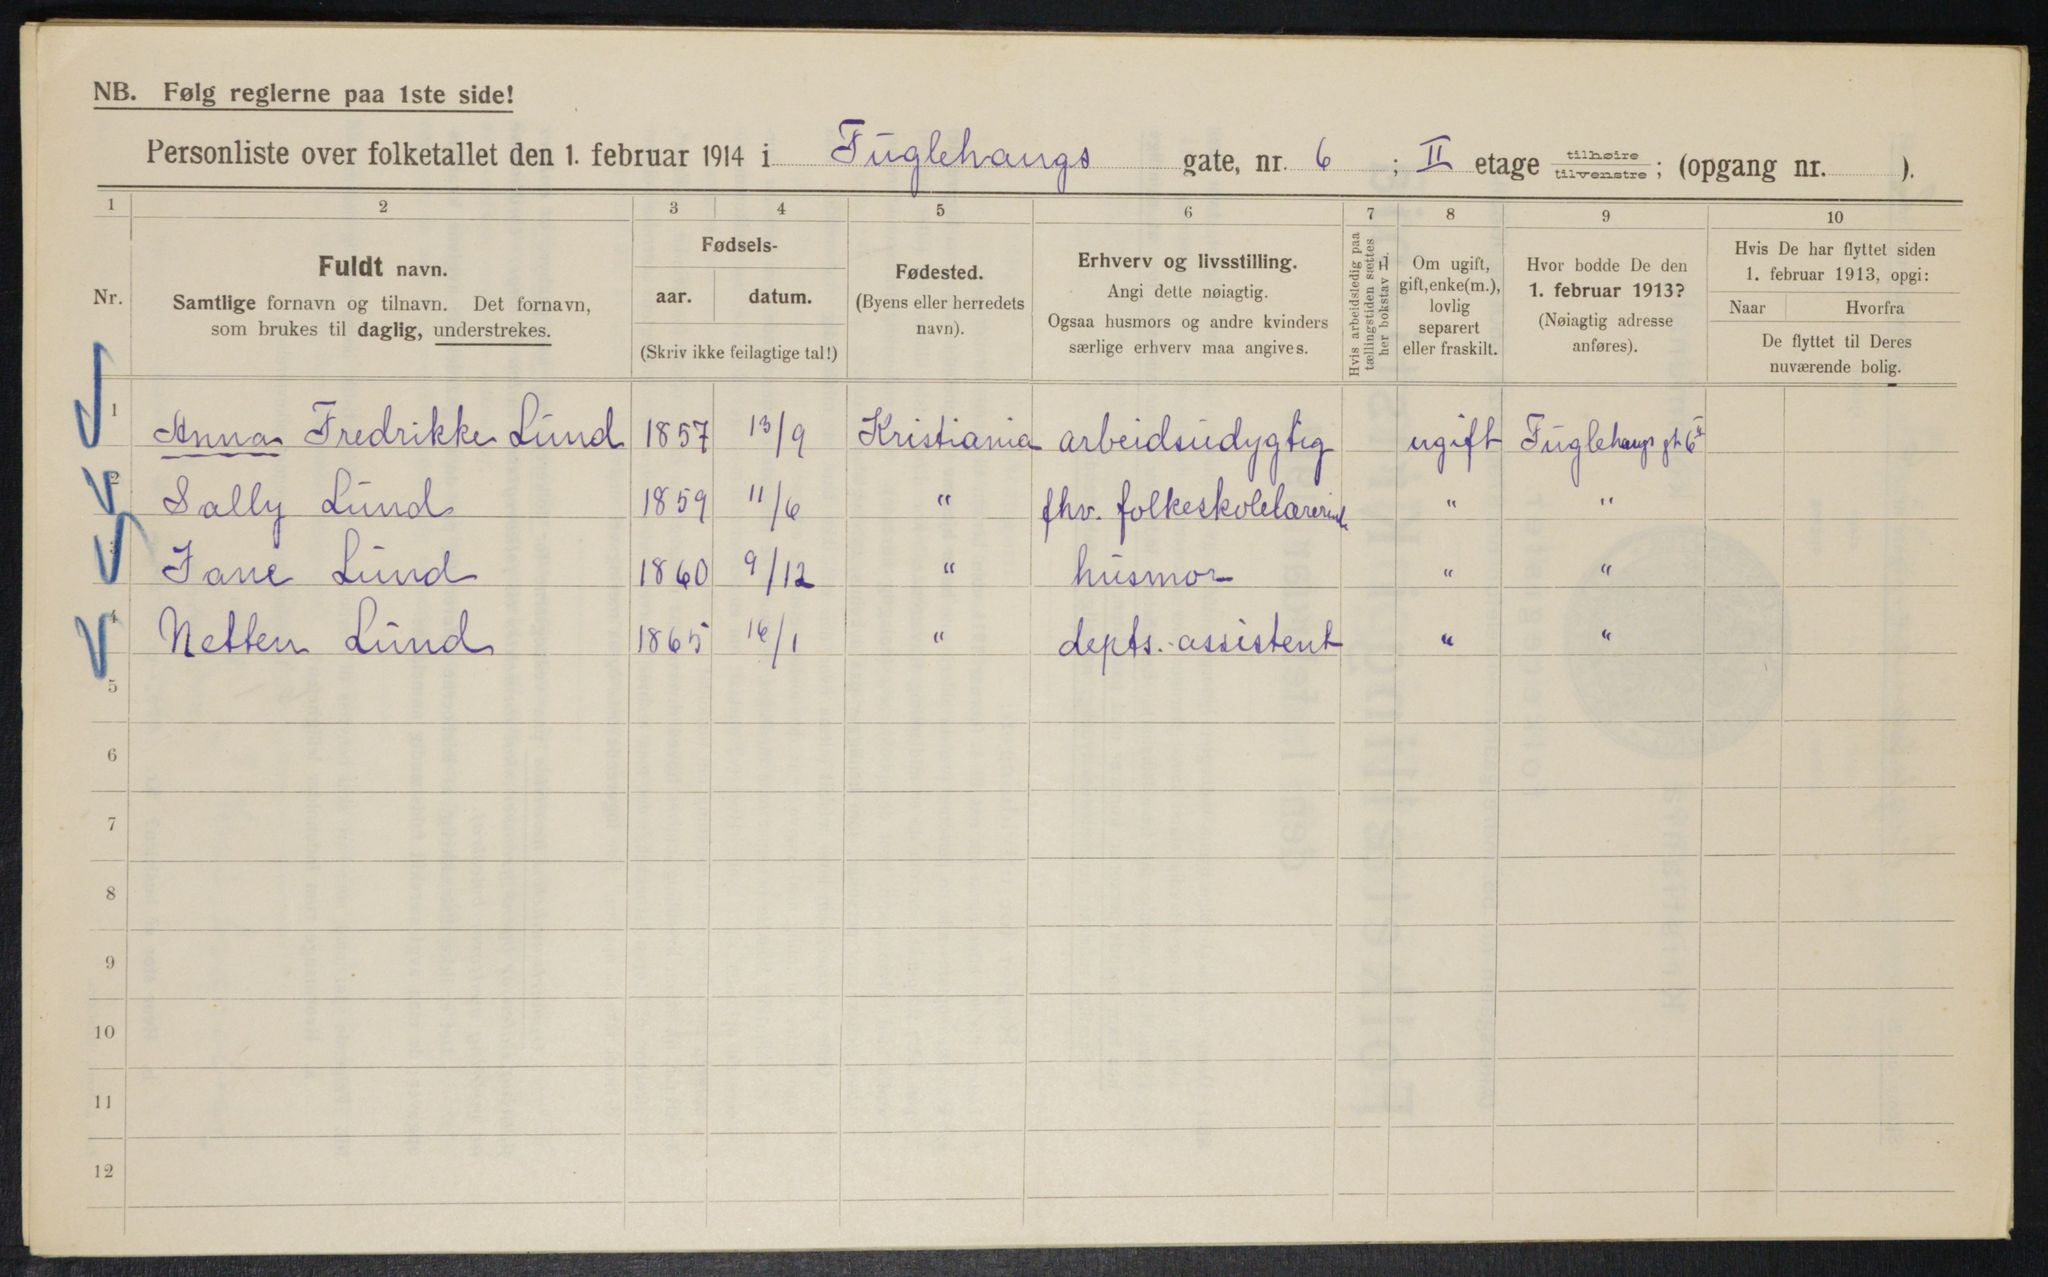 NB. Følg reglerne paa 1ste side!
Personliste over folketallet den 1. februar 1914 i Fuglehaugs gate, nr. 6 ; II etage tilhøire tilvenstre ; (opgang nr. ).
1 2 3 4 5 6 7 8 9 10
Nr.
Fuldt navn.
Samtlige fornavn og tilnavn. Det fornavn,
som brukes til daglig, understrekes.
Fødsels-
aar. datum.
(Skriv ikke feilagtige tal!)
Fødested.
(Byens eller herredets
navn).
Erhverv og livsstilling.
Angi dette nøiagtig.
Ogsaa husmors og andre kvinders
særlige erhverv maa angives.
Hvis arbeidsledig paa
tællingstiden sættes
her bokstav H.
Om ugift,
gift, enke(m.),
lovlig
separert
eller fraskilt.
Hvor bodde De den
1. februar 1913?
(Nøiagtig adresse
anføres).
Hvis De har flyttet siden
1. februar 1913, opgi:
Naar Hvorfra
De flyttet til Deres
nuværende bolig.
1 Anna Fredrikke Lund 1857 13/9 Kristiania arbeidsudygtig ugift Fuglehaugs gt 6 II
2 Sally Lund 1859 11/6 " fhv. folkeskolelærerinde " "
3 Jane Lund 1860 9/12 " husmor " "
4 Netten Lund 1865 16/1 " depts.-assistent " "
5
6
7
8
9
10
11
12